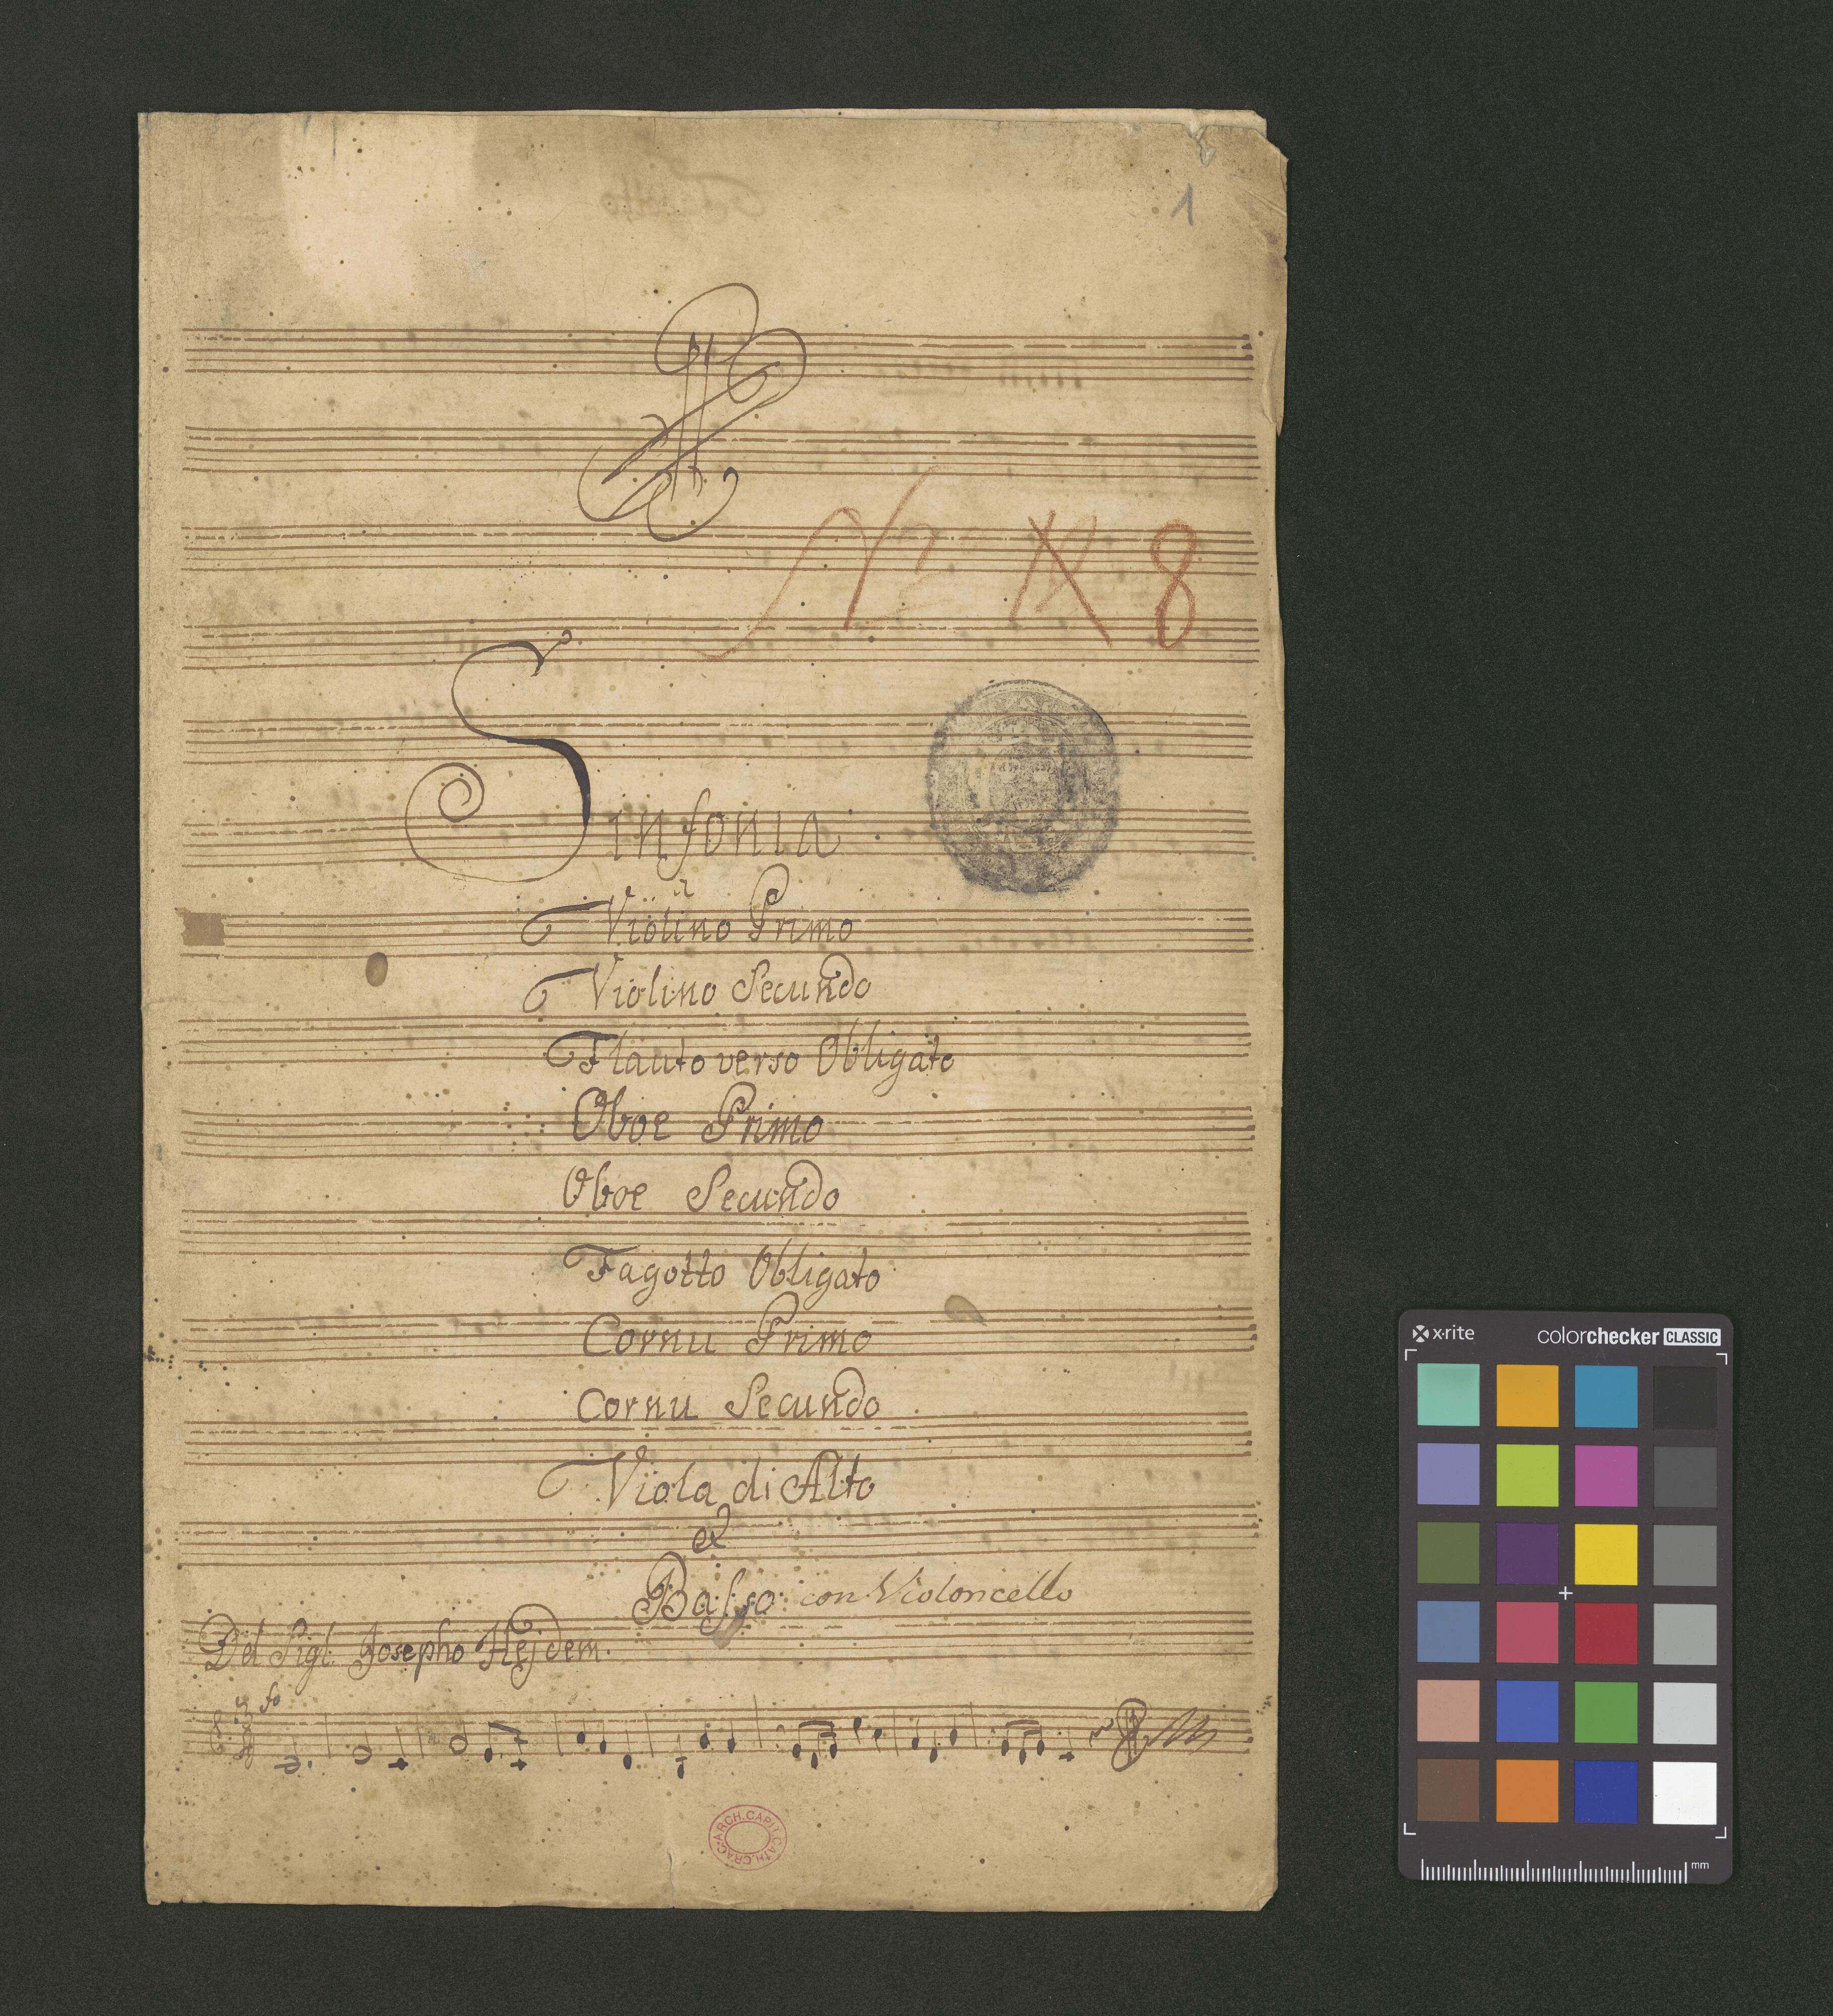 1
No 8
Sinfonia
Violino Primo
Violino Secundo
Flauto verso Obligato
Oboe Primo
Oboe Secundo
Fagotto Obligato
Cornu Primo
Cornu Secundo
Viola di Alto
et
Basso con Violoncello
Del Sigl. Josepho Hejdem.
fo
ARCH.CAPIT.CATH.CRAC.
x·rite colorchecker CLASSIC
mm